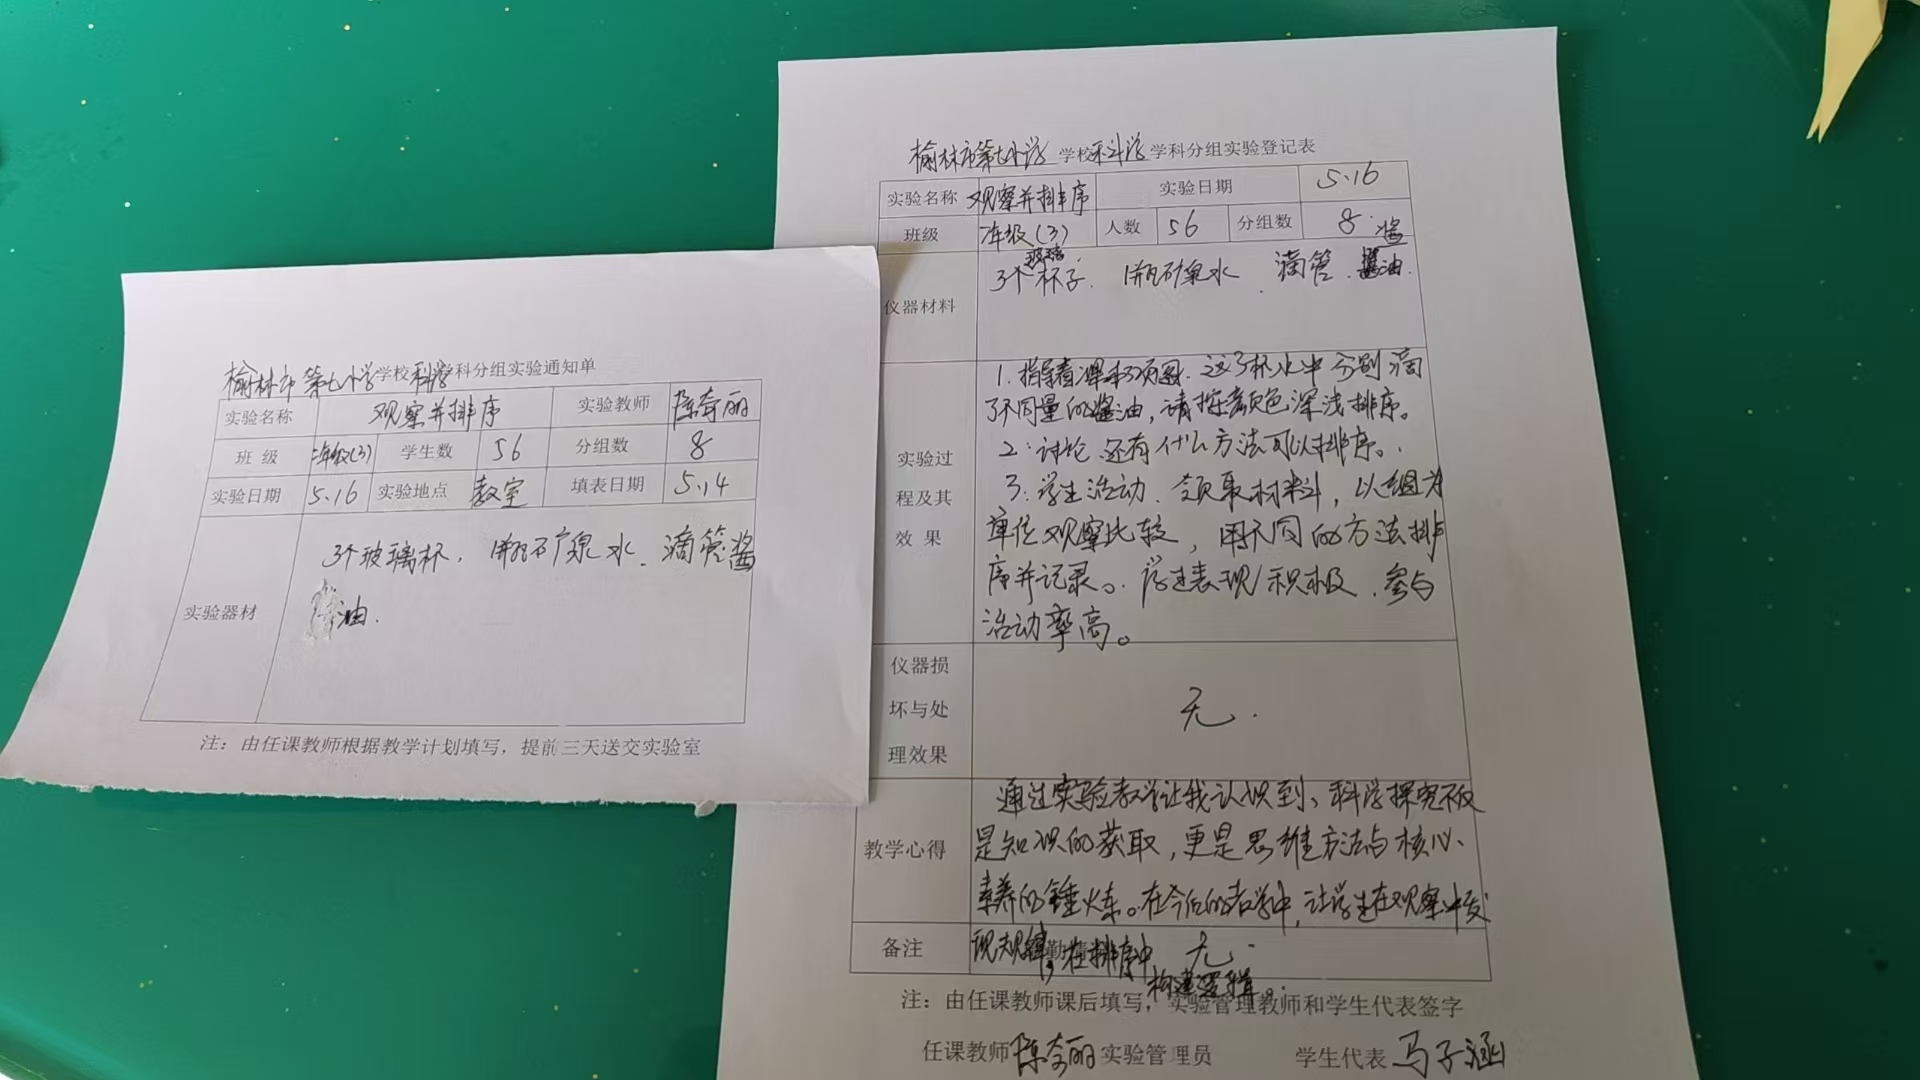 榆林市第七小学学校科学学科分组实验通知单
实验名称 观察并排序 实验教师 陈奇丽
班 级 二年级(3) 学生数 56 分组数 8
实验日期 5.16 实验地点 教室 填表日期 5.14
实验器材 3个玻璃杯, 1瓶矿泉水、滴管酱
油.
注：由任课教师根据教学计划填写，提前三天送交实验室
榆林市第七小学 学校科学学科分组实验登记表
实验名称 观察并排序 实验日期 5.16
班级 二年级(3) 人数 56 分组数 8
仪器材料 3个玻璃杯子. 1瓶矿泉水、滴管、酱油.
实验过程及其效果
1. 指导者 这3杯水中分别滴
了不同量的酱油,请按颜色深浅排序。
2: 讨论 还有什么方法可以排序。
3: 学生活动. 领取材料, 以组为
单位观察比较, 用不同的方法排
序并记录。学生表现积极、参与
活动率高。
仪器损坏与处理效果 无.
教学心得
通过实验教学让我认识到、科学探究不仅
是知识的获取,更是思维方法与核心、
素养的锤炼。在今后的教学中,让学生在观察中发
现规律,在排序中
构建逻辑。
备注 无.
注：由任课教师课后填写，实验管理教师和学生代表签字
任课教师 陈奇丽 实验管理员 学生代表 马子涵